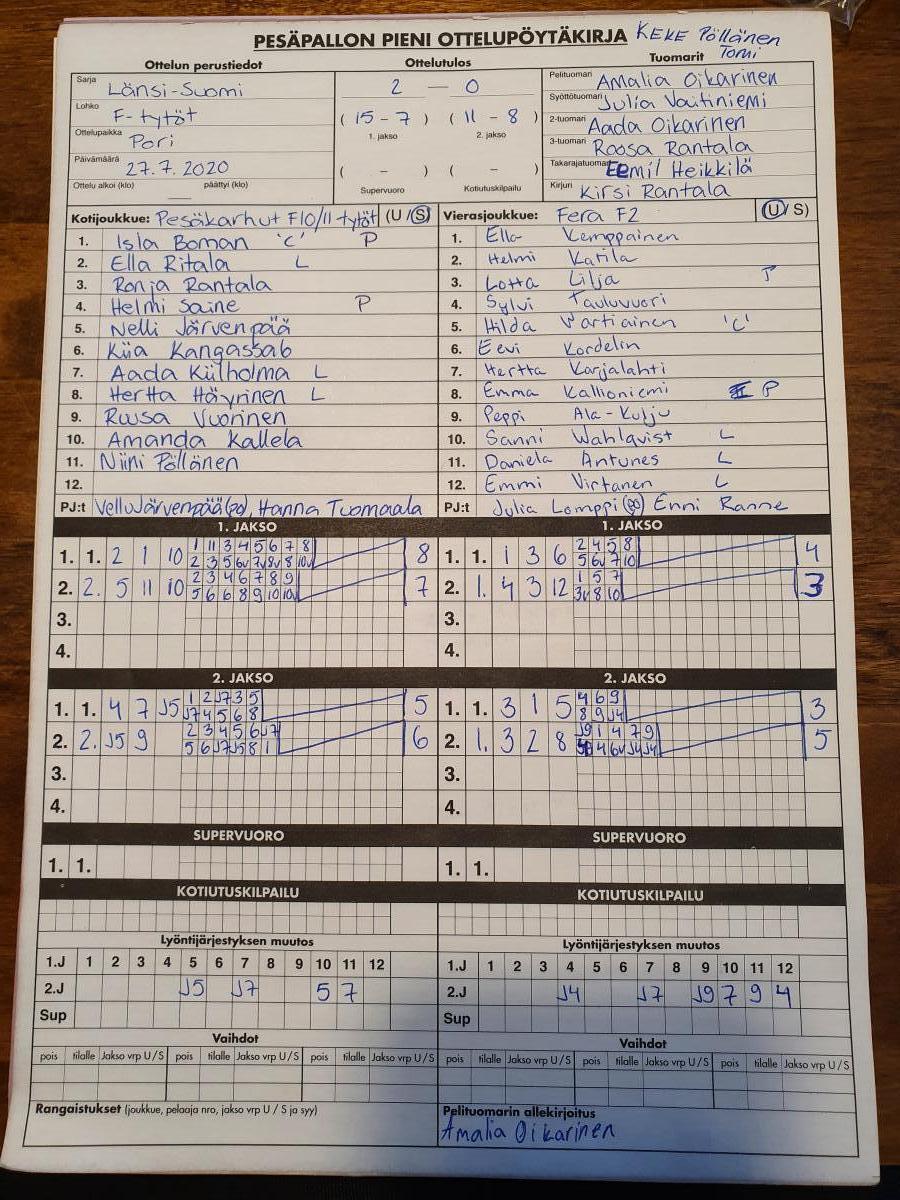 PESÄPALLON PIENI OTTELUPÖYTÄKIRJA KEKE Pöllänen
Tomi
Ottelun perustiedot Ottelutulos Tuomarit
Sarja Länsi-Suomi
2 — 0
Pelituomari Amalia Oikarinen
Lohko F-tytöt
Syöttötuomari Julia Vaitiniemi
Ottelupaikka Pori
( 15 - 7 ) ( 11 - 8 )
1. jakso 2. jakso
2-tuomari Aada Oikarinen
3-tuomari Roosa Rantala
Päivämäärä 27.7.2020
( - ) ( - )
Takarajatuomari Eemil Heikkilä
Ottelu alkoi (klo) päättyi (klo)
Supervuoro Kotiutuskilpailu
Kirjuri Kirsi Rantala
Kotijoukkue: Pesäkarhut F10/11 tytöt (U/S)
1. Isla Boman 'C' P
2. Ella Ritala L
3. Ronja Rantala
4. Helmi Saine P
5. Nelli Järvenpää
6. Kiia Kangassalo
7. Aada Kulholma L
8. Hertta Häyrinen L
9. Ruusa Vuorinen
10. Amanda Kallela
11. Niini Pöllänen
12.
PJ:t Vellu Järvenpää (po), Hanna Tuomaala
Vierasjoukkue: Fera F2 (U/S)
1. Ella Kemppainen
2. Helmi Katila
3. Lotta Lilja
4. Sylvi Tauluvuori
5. Hilda Vartiainen 'C'
6. Eevi Kordelin
7. Hertta Karjalahti
8. Emma Kallioniemi P
9. Peppi Ala-Kulju
10. Sanni Wahlqvist L
11. Daniela Antunes L
12. Emmi Virtanen L
PJ:t Julia Lomppi (po) Enni Ranne
1. JAKSO
1. 1. 2 1 10 1 11 3 4 5 6 7 8 8
2 3 5 6v 7v 8v 8 10v
2. 2. 5 11 10 2 3 4 6 7 8 9 7
5 6 6 8 9 10 10v
3.
4.
1. JAKSO
1. 1. 1 3 6 2 4 5 8 4
5 6v 7 10
2. 1. 4 3 12 1 5 7 3
3v 8 10
3.
4.
2. JAKSO
1. 1. 4 7 J5 1 2 J7 3 5 5
J7 4 5 6 8
2. 2. J5 9 2 3 4 5 6 J7 6
5 6 J7 J5 8 1
3.
4.
2. JAKSO
1. 1. 3 1 5 4 6 9 3
8 9 J4
2. 1. 3 2 8 J9 1 4 7 9 5
4 6v J4 J4
3.
4.
SUPERVUORO
1. 1.
SUPERVUORO
1. 1.
KOTIUTUSKILPAILU
KOTIUTUSKILPAILU
Lyöntijärjestyksen muutos
1.J 1 2 3 4 5 6 7 8 9 10 11 12
2.J J5 J7 5 7
Sup
Lyöntijärjestyksen muutos
1.J 1 2 3 4 5 6 7 8 9 10 11 12
2.J J4 J7 J9 7 9 4
Sup
Vaihdot
pois tilalle Jakso vrp U/S pois tilalle Jakso vrp U/S pois tilalle Jakso vrp U/S
Vaihdot
pois tilalle Jakso vrp U/S pois tilalle Jakso vrp U/S pois tilalle Jakso vrp U/S
Rangaistukset (joukkue, pelaaja nro, jakso vrp U / S ja syy)
Pelituomarin allekirjoitus
Amalia Oikarinen